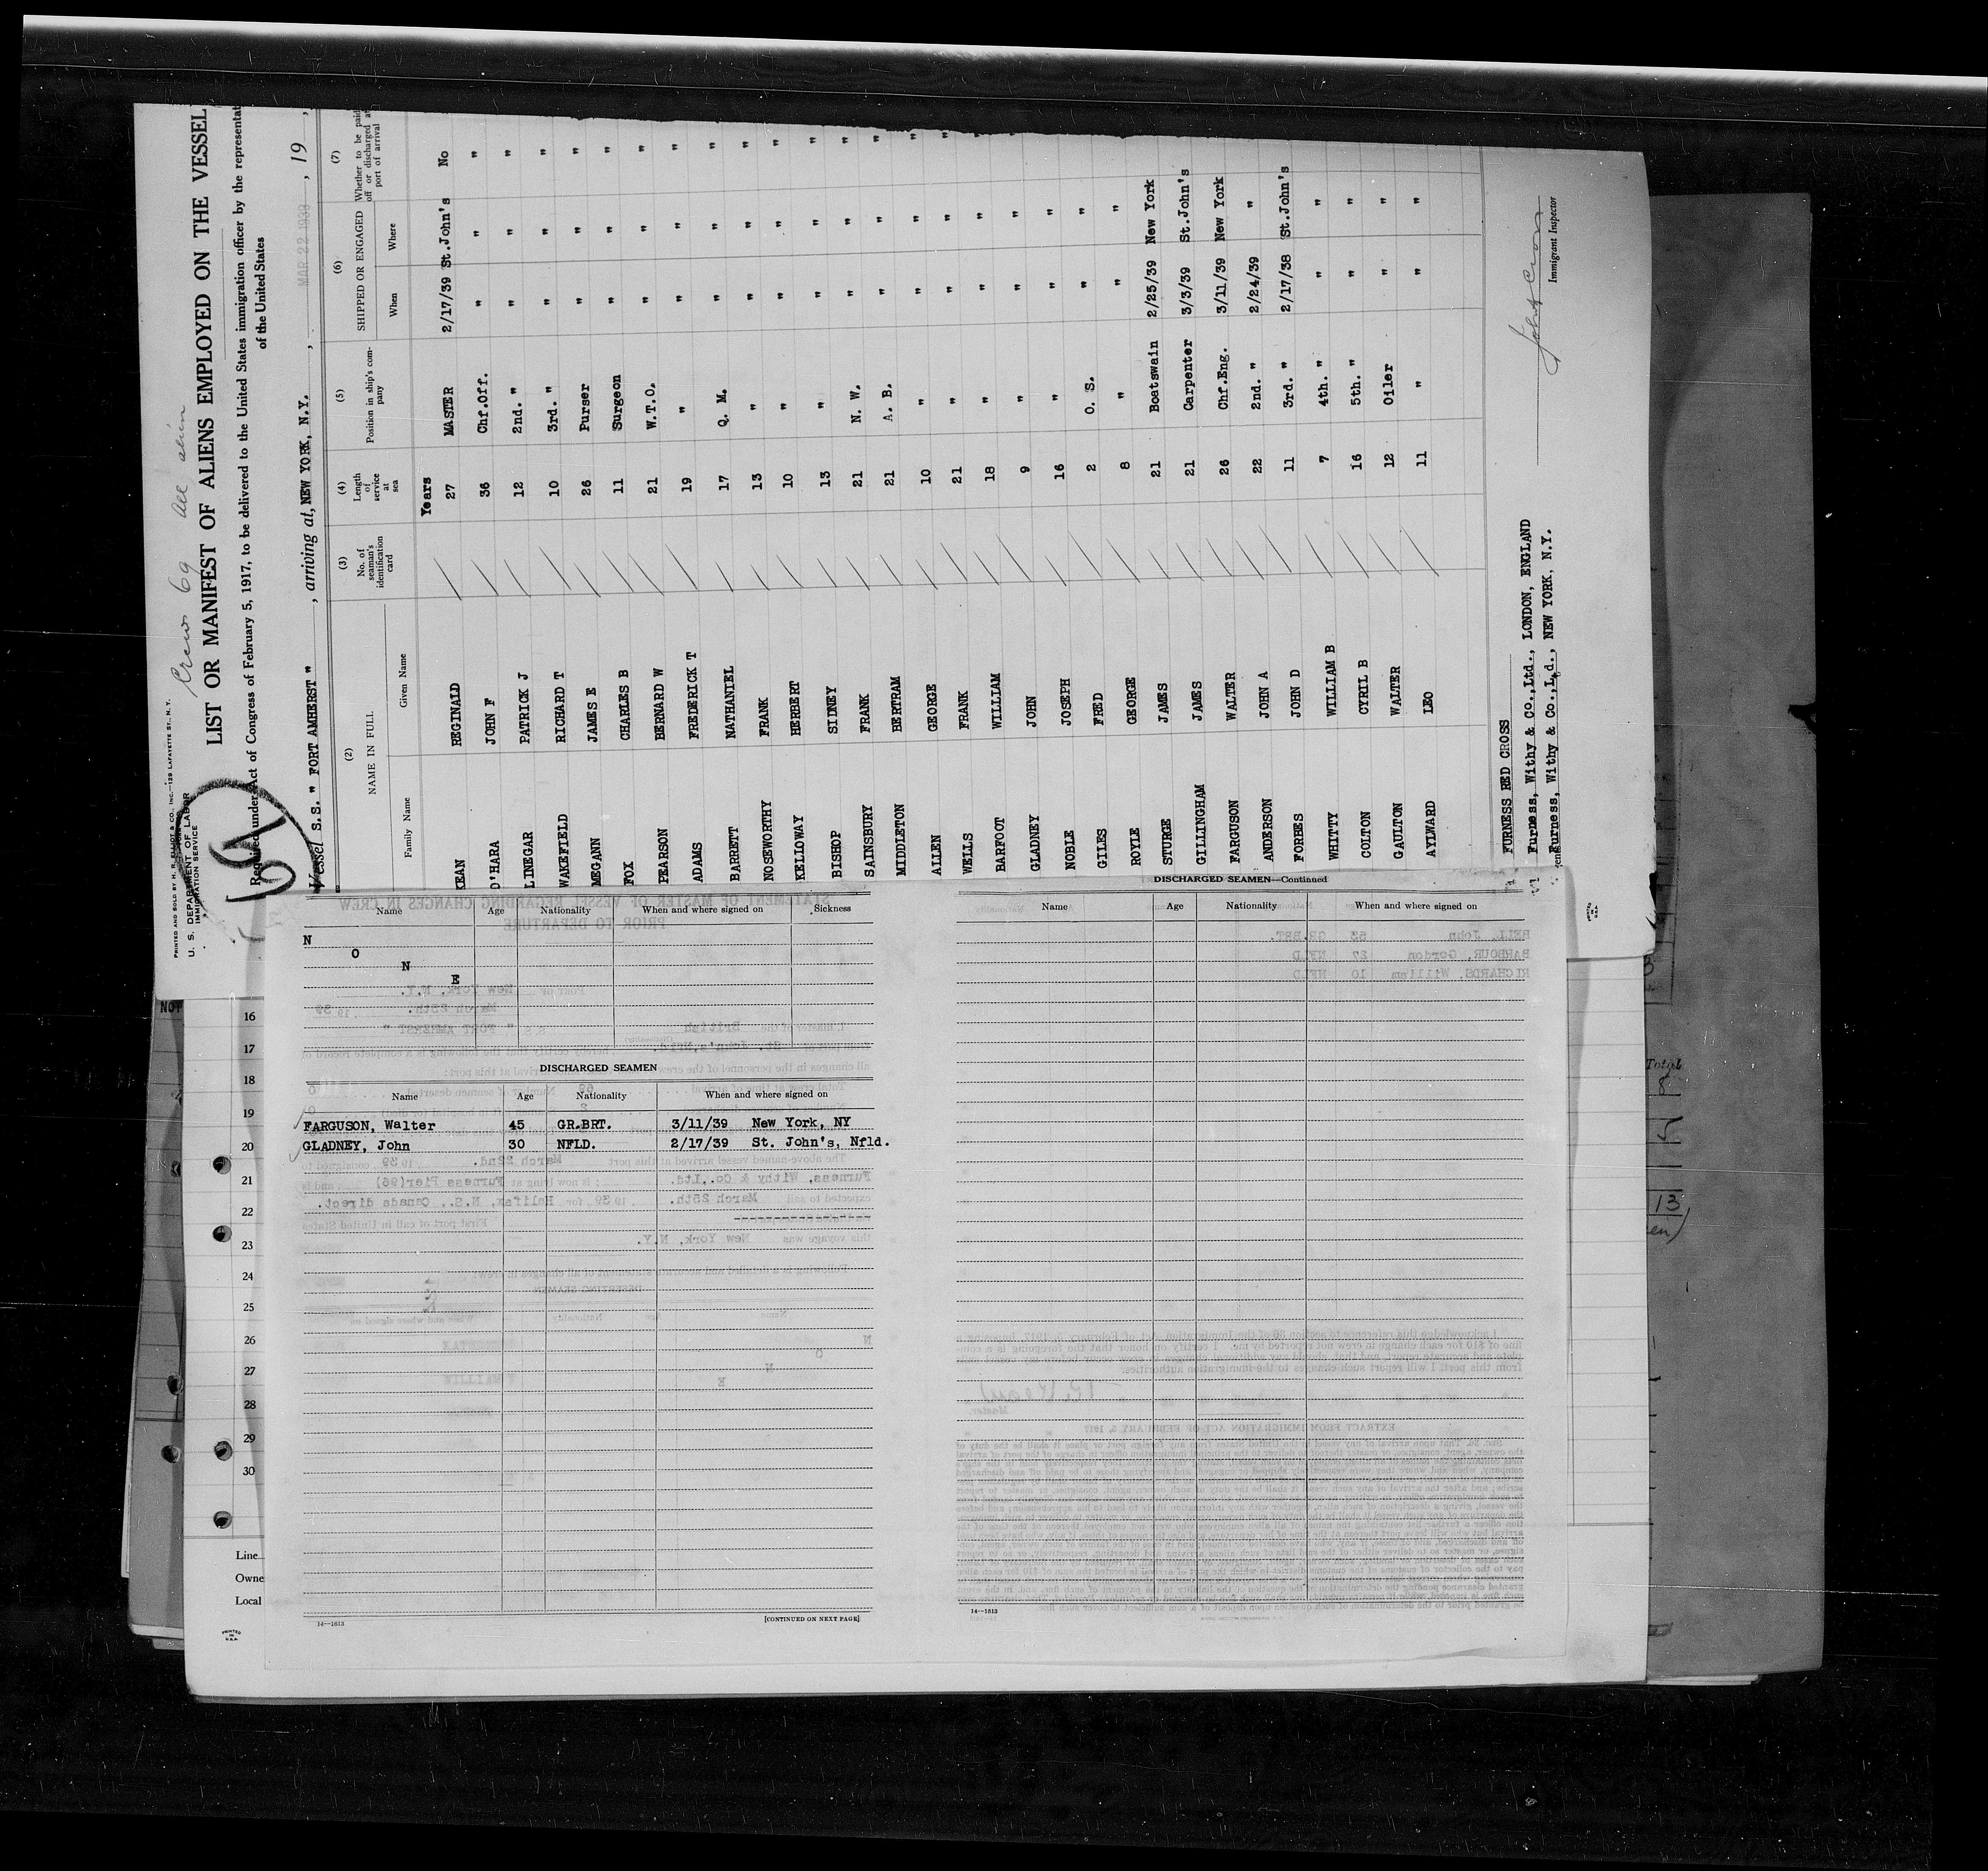 PRINTED AND SOLD BY H. R. ELLIOT & CO., INC.—129 LAFAYETTE ST., N. Y.
U. S. DEPARTMENT OF LABOR
IMMIGRATION SERVICE
Crew 69 all alien
LIST OR MANIFEST OF ALIENS EMPLOYED ON THE VESSEL
Required under Act of Congress of February 5, 1917, to be delivered to the United States immigration officer by the representat
of the United States
Vessel S.S. " FORT AMHERST " , arriving at, NEW YORK, N.Y. , MAR 22 1939 , 19 ,
(2) (3) (4) (5) (6) (7)
NAME IN FULL No. of seaman's identification card Length of service at sea Position in ship's company SHIPPED OR ENGAGED Whether to be paid off or discharged at port of arrival
Family Name Given Name When Where
Years
KEAN REGINALD 27 MASTER 2/17/39 St.John's No
O'HARA JOHN F 36 Chf.Off. " " "
LINEGAR PATRICK J 12 2nd. " " " "
WAKEFIELD RICHARD T 10 3rd. " " " "
MEGANN JAMES E 26 Purser " " "
FOX CHARLES B 11 Surgeon " " "
PEARSON BERNARD W 21 W.T.O. " " "
ADAMS FREDERICK T 19 " " " "
BARRETT NATHANIEL 17 Q. M. " " "
NOSEWORTHY FRANK 13 " " " "
KELLOWAY HERBERT 10 " " " "
BISHOP SIDNEY 13 " " " "
SAINSBURY FRANK 21 N. W. " " "
MIDDLETON BERTRAM 21 A. B. " " "
ALLEN GEORGE 10 " " " "
WELLS FRANK 21 " " " "
BARFOOT WILLIAM 18 " " " "
GLADNEY JOHN 9 " " " "
NOBLE JOSEPH 16 " " "
GILES FRED 2 O. S. " "
ROYLE GEORGE 8 " " "
STURGE JAMES 21 Boatswain 2/25/39 New York
GILLINGHAM JAMES 21 Carpenter 3/3/39 St.John's
FARGUSON WALTER 26 Chf.Eng. 3/11/39 New York
ANDERSON JOHN A 22 2nd. " 2/24/39 "
FORBES JOHN D 11 3rd. " 2/17/38 St.John's
WHITTY WILLIAM B 7 4th. " " "
COLTON CYRIL B 16 5th. " " "
GAULTON WALTER 12 Oiler " "
AYLWARD LEO 11 " " "
FURNESS RED CROSS
Furness, Withy & Co.,Ltd., LONDON, ENGLAND
Furness, Withy & Co.,Ltd., NEW YORK, N.Y.
Immigrant Inspector
Name Age Nationality When and where signed on Sickness
N
O
N
E
DISCHARGED SEAMEN
Name Age Nationality When and where signed on
FARGUSON, Walter 45 GR.BRT. 3/11/39 New York, NY
GLADNEY, John 30 NFLD. 2/17/39 St. John's, Nfld.
14—1613
[CONTINUED ON NEXT PAGE]
DISCHARGED SEAMEN—Continued
Name Age Nationality When and where signed on
14—1613
NOT
16
17
18
19
20
21
22
23
24
25
26
27
28
29
30
Line
Owne
Local
PRINTED
IN
U.S.A.
Total
8
13